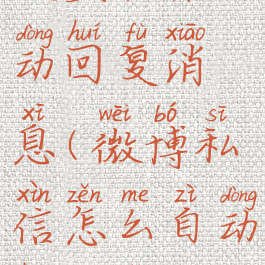 dòng huí fù xiāo
动回复消
xī wēi bó sī
息(微博私
xìn zěn me zì dòng
信怎么自动